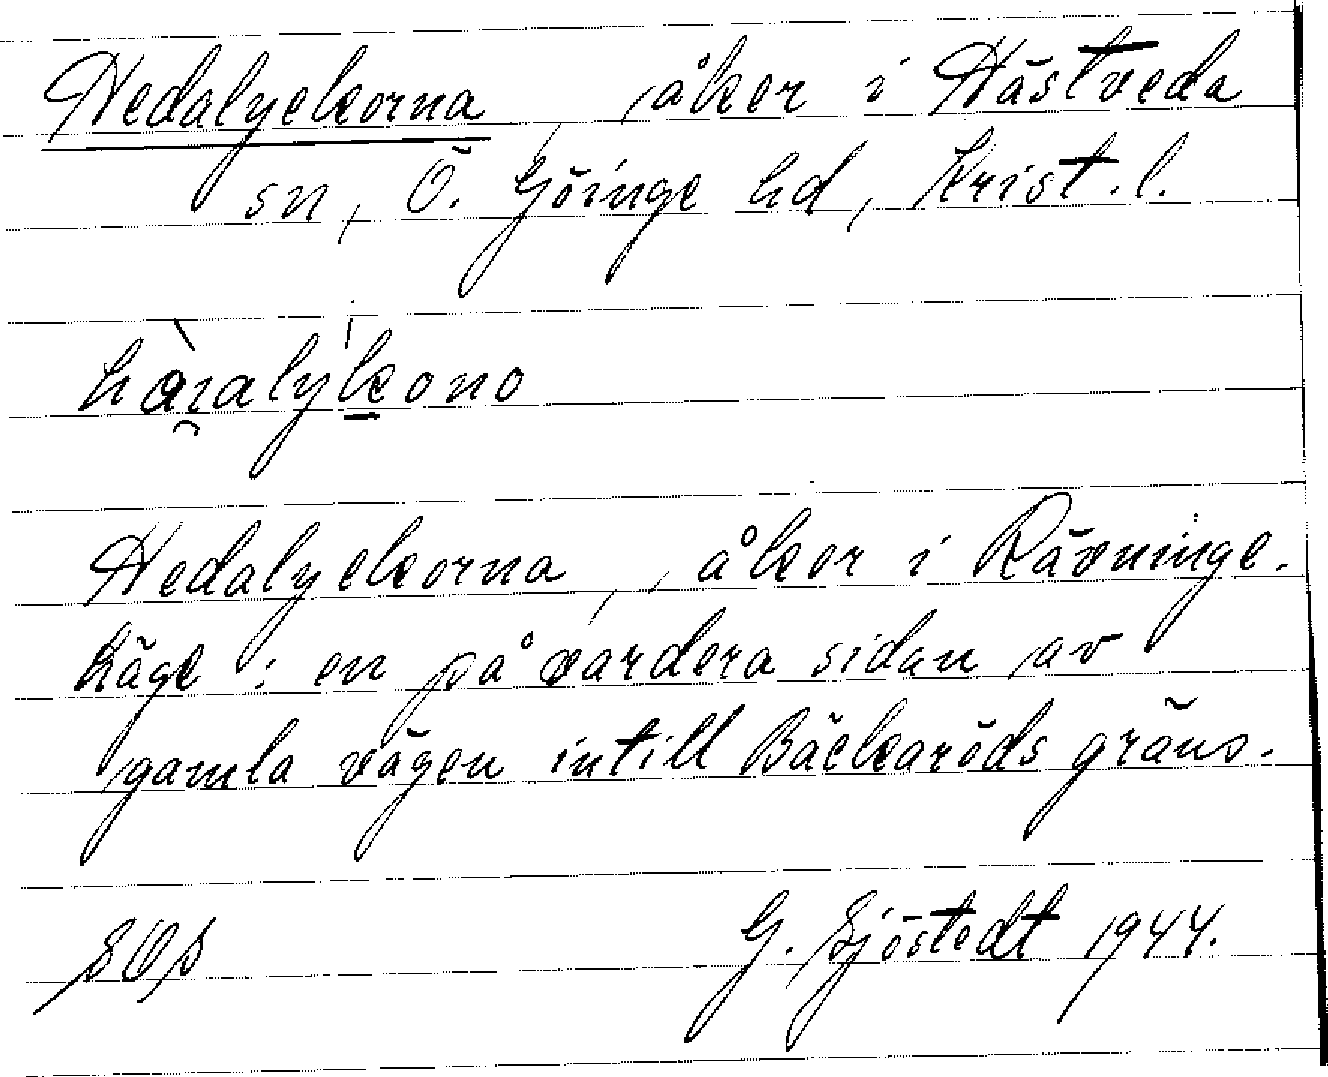 Hedalyckorna, åkor i Hästveda
sn, Ö. Göinge hd, Krist. l.
hàralýkono
Hedalyckorna, åkor i Rävninge.
Räge: en på vardera sidan av
gamla vägen intill Bäckaröds gräns.
G. Sjöstedt 1944.